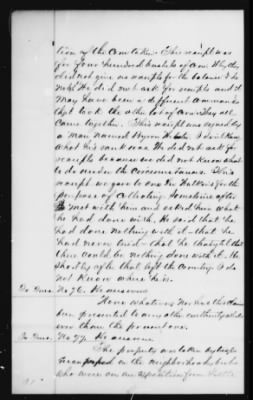 tion of the Corn taken. This receipt was
for four hundred bushels of Corn. Why they
did not give us receipts for the balance I do
not We did not ask for receipts and it
may have been a different command
that took the other lot of Corn They all
came together. This receipt was signed by
a man named Byron I dont know
what his rank was We did not ask for
receipts because we did not know what
to do under the circumstances. This
receipt we gave to one for the
purpose of Collecting. Sometime after
I met with him and asked him what
he had done with. He said that he
had done nothing with it - that he
had never tried - that he thought that
there could be nothing done with it. He
shortly after that left the Country. I do
not know where he is.
No 76. He answers
None whatever. Nor has this claim
been presented to any other authority
ever than the present one.
No 77. He answers
The property was taken by
in the neighborhood, but
who were on an expedition from Little